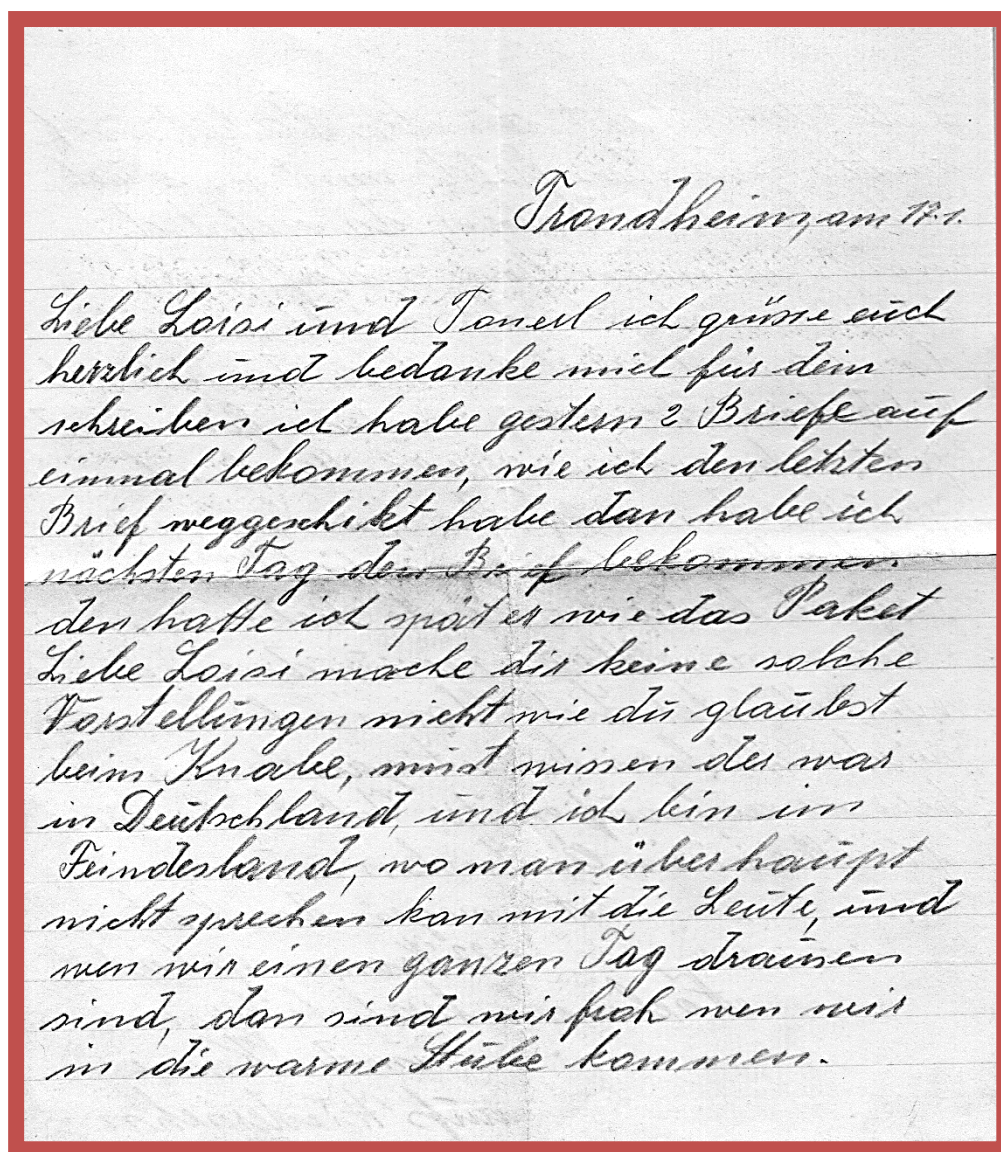 Trondheim, am 17.1.
Liebe Loisi und Tonerl ich grüsse euch
herzlich und bedanke mich für dein
schreiben ich habe gestern 2 Briefe auf
einmal bekommen, wie ich den letzten
Brief weggeschikt habe dan habe ich
nächsten Tag den Brief bekommen.
den hatte ich später wie das Paket
Liebe Loisi mache dir keine solche
Vorstellungen nicht wie du glaubst
beim Knabe, must wissen der war
in Deutschland, und ich bin im
Feindesland, wo man überhaupt
nicht sprechen kan mit die Leute, und
wen wir einen ganzen Tag drausen
sind, dan sind wir froh wen wir
in die warme Stube kommen.